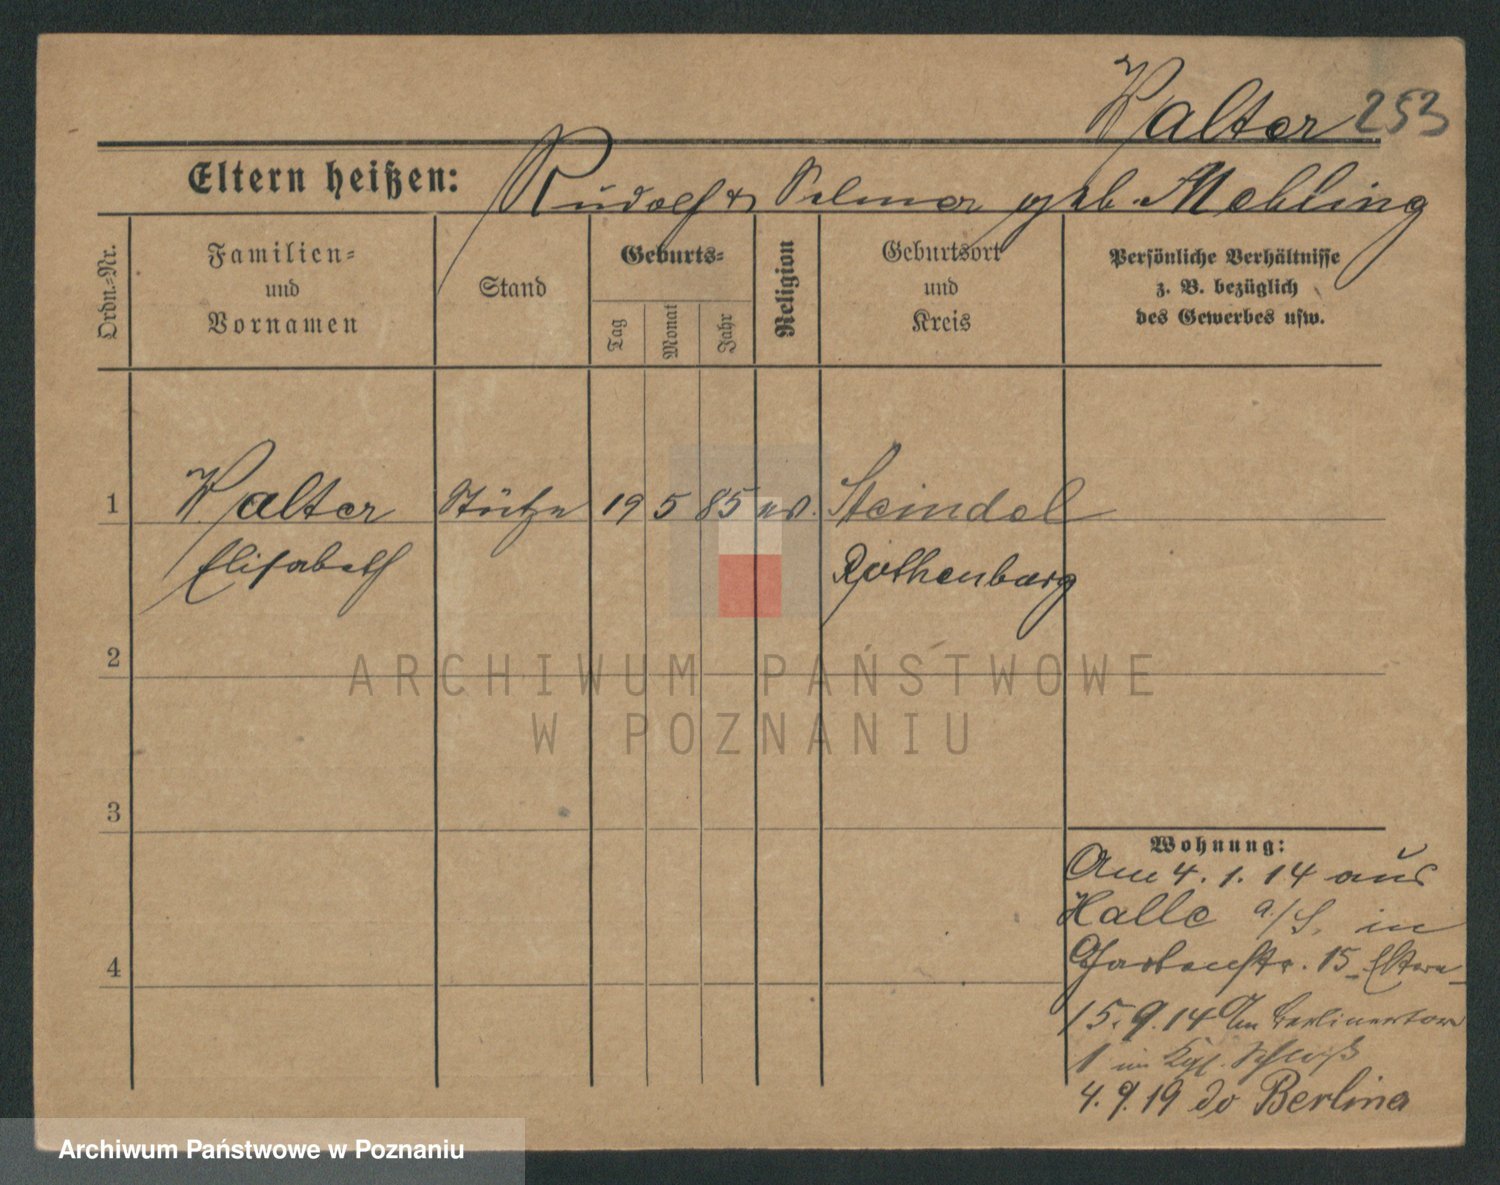 Walter 253
Eltern heißen: Rudolf & Selma geb. Mehling
Ordn.-Nr.
Familien- und Vornamen
Stand
Geburts-
Tag
Monat
Jahr
Religion
Geburtsort und Kreis
Persönliche Verhältnisse
z. B. bezüglich
des Gewerbes usw.
1 Walter Stütze 19 5 85 ev. Steindel
Elisabeth Rothenburg
2
ARCHIWUM PAŃSTWOWE
W POZNANIU
3
Wohnung:
Am 4.1.14 aus
Halle a/S. in
Gartenstr. 15 Eltern
4
15.9.14 Am Berlinertor
1 im Kgl. Schloß
4.9.19 do Berlin
Archiwum Państwowe w Poznaniu